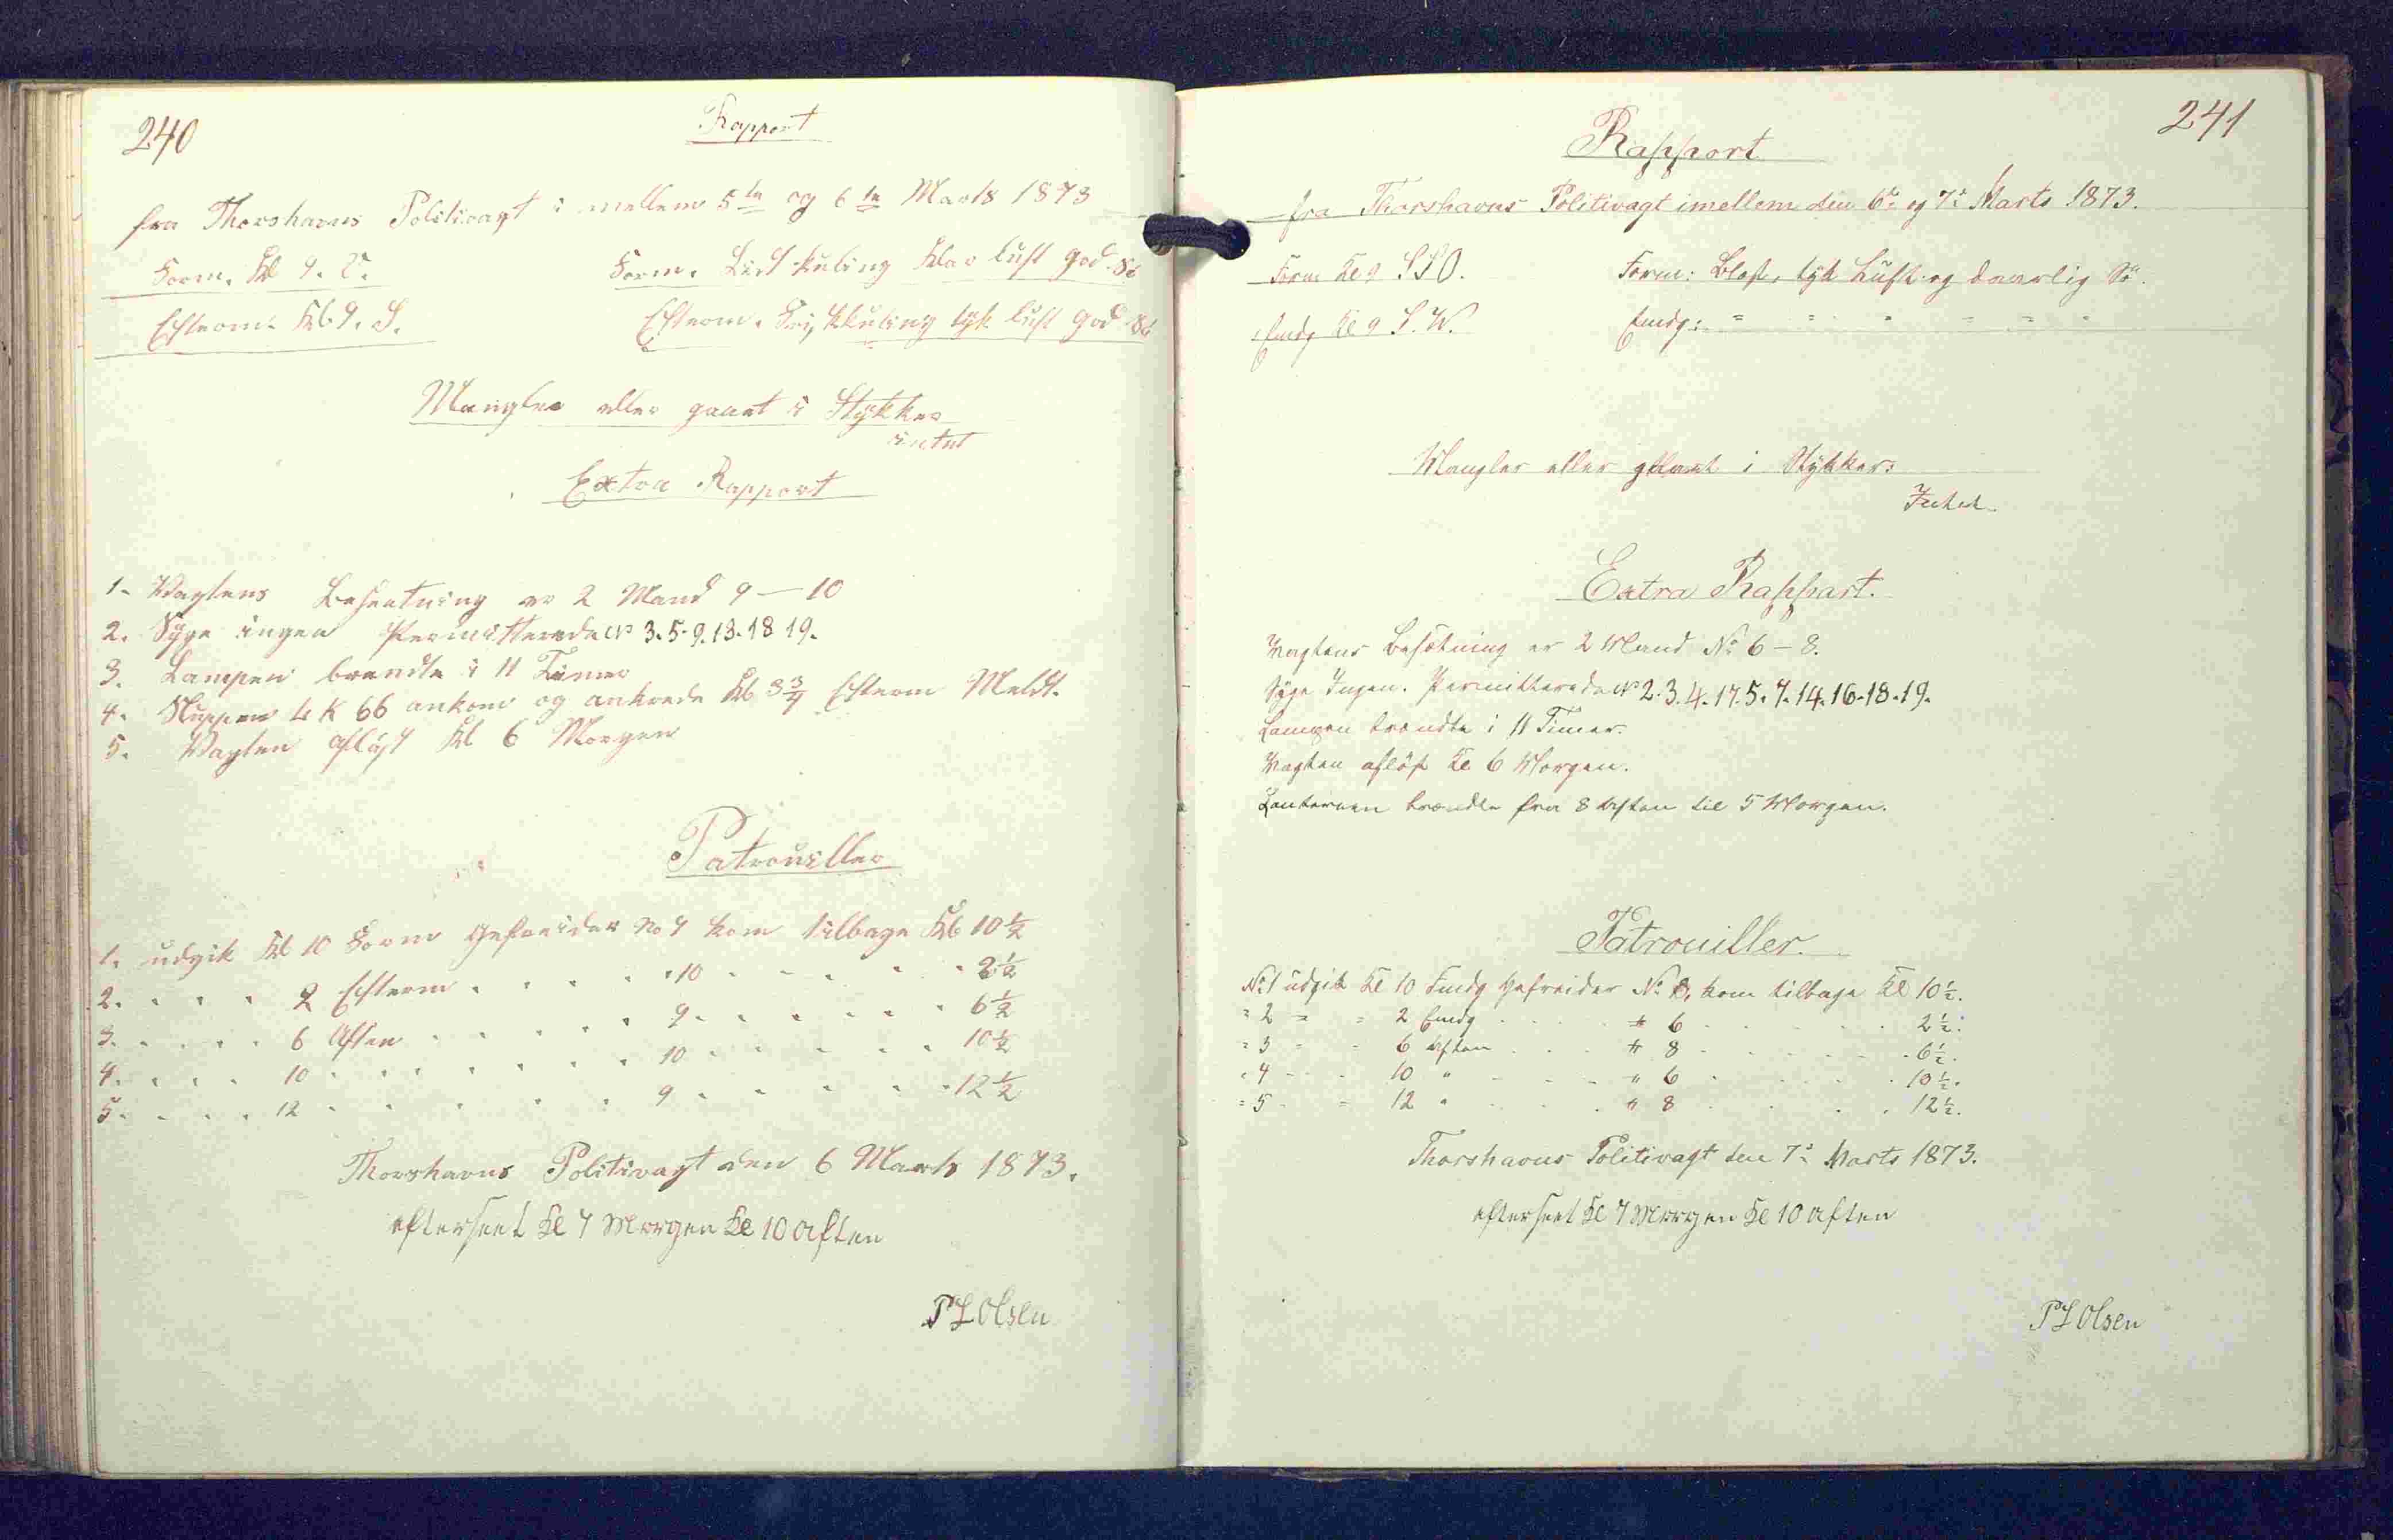 240
Rapport
fra Thorshavns Politivagt i mellem 5te og 6te Marts 1873
Form. Kl 9. V.
Form. Lidt kuling klar luft god Sö
Efterm. Kl 9. S.
Efterm. Frisk kuling tyk luft god Sö
Mangler eller gaaet i Stykker
intet
Extra Rapport
1. Vagtens Besætning er 2 Mand 9 — 10
2. Syge ingen Permitterede No 3. 5. 9. 13. 18 19.
3. Lampen brendte i 11 Timer
4. Sluppen LK 66 ankom og ankrede Kl 3 3/4 Efterm Meldt.
5. Vagten aflöst Kl 6 Morgen
Patrouiller
1. udgik Kl 10 Form Gefreider No 9 kom tilbage Kl 10 1/2
2. " " " 2 Efterm " " " " 10 " " " " 2 1/2
3. " " " 6 Aften " " " " 9 " " " " 6 1/2
4. " " " 10 " " " " " 10 " " " " 10 1/2
5. " " " 12 " " " " " 9 " " " " 12 1/2
Thorshavns Politivagt den 6 Marts 1873.
efterseet Kl 7 Morgen Kl 10 Aften
P L Olsen
241
Rapport
fra Thorshavns Politivagt imellem den 6te og 7de Marts 1873.
Form Kl 9 SSO.
Form: Blæst, tyk Luft og daarlig Sö.
Emdg Kl 9 S.W.
Emdg: " " " " " "
Mangler eller gaaet i Stykker:
Intet
Extra Rapport.
Vagtens Besætning er 2 Mand No 6 – 8.
Syge Ingen. Permitterede No 2. 3. 4. 17. 5. 7. 14. 16. 18. 19.
Lampen brændte i 11 Timer.
Vagten aflöst Kl 6 Morgen.
Lanternen brændte fra 8 Aften til 5 Morgen.
Patrouiller.
No 1 udgik Kl 10 Fmdg Gefreider No 8, kom tilbage Kl 10 1/2.
" 2 " " 2 Emdg " " " 6 " " " 2 1/2.
" 3 " " 6 Aften " " " 8 " " " 6 1/2.
" 4 " " 10 " " " " 6 " " " 10 1/2.
" 5 " " 12 " " " " 8 " " " 12 1/2.
Thorshavns Politivagt den 7de Marts 1873.
efterseet Kl 7 Morgen Kl 10 Aften
P L Olsen